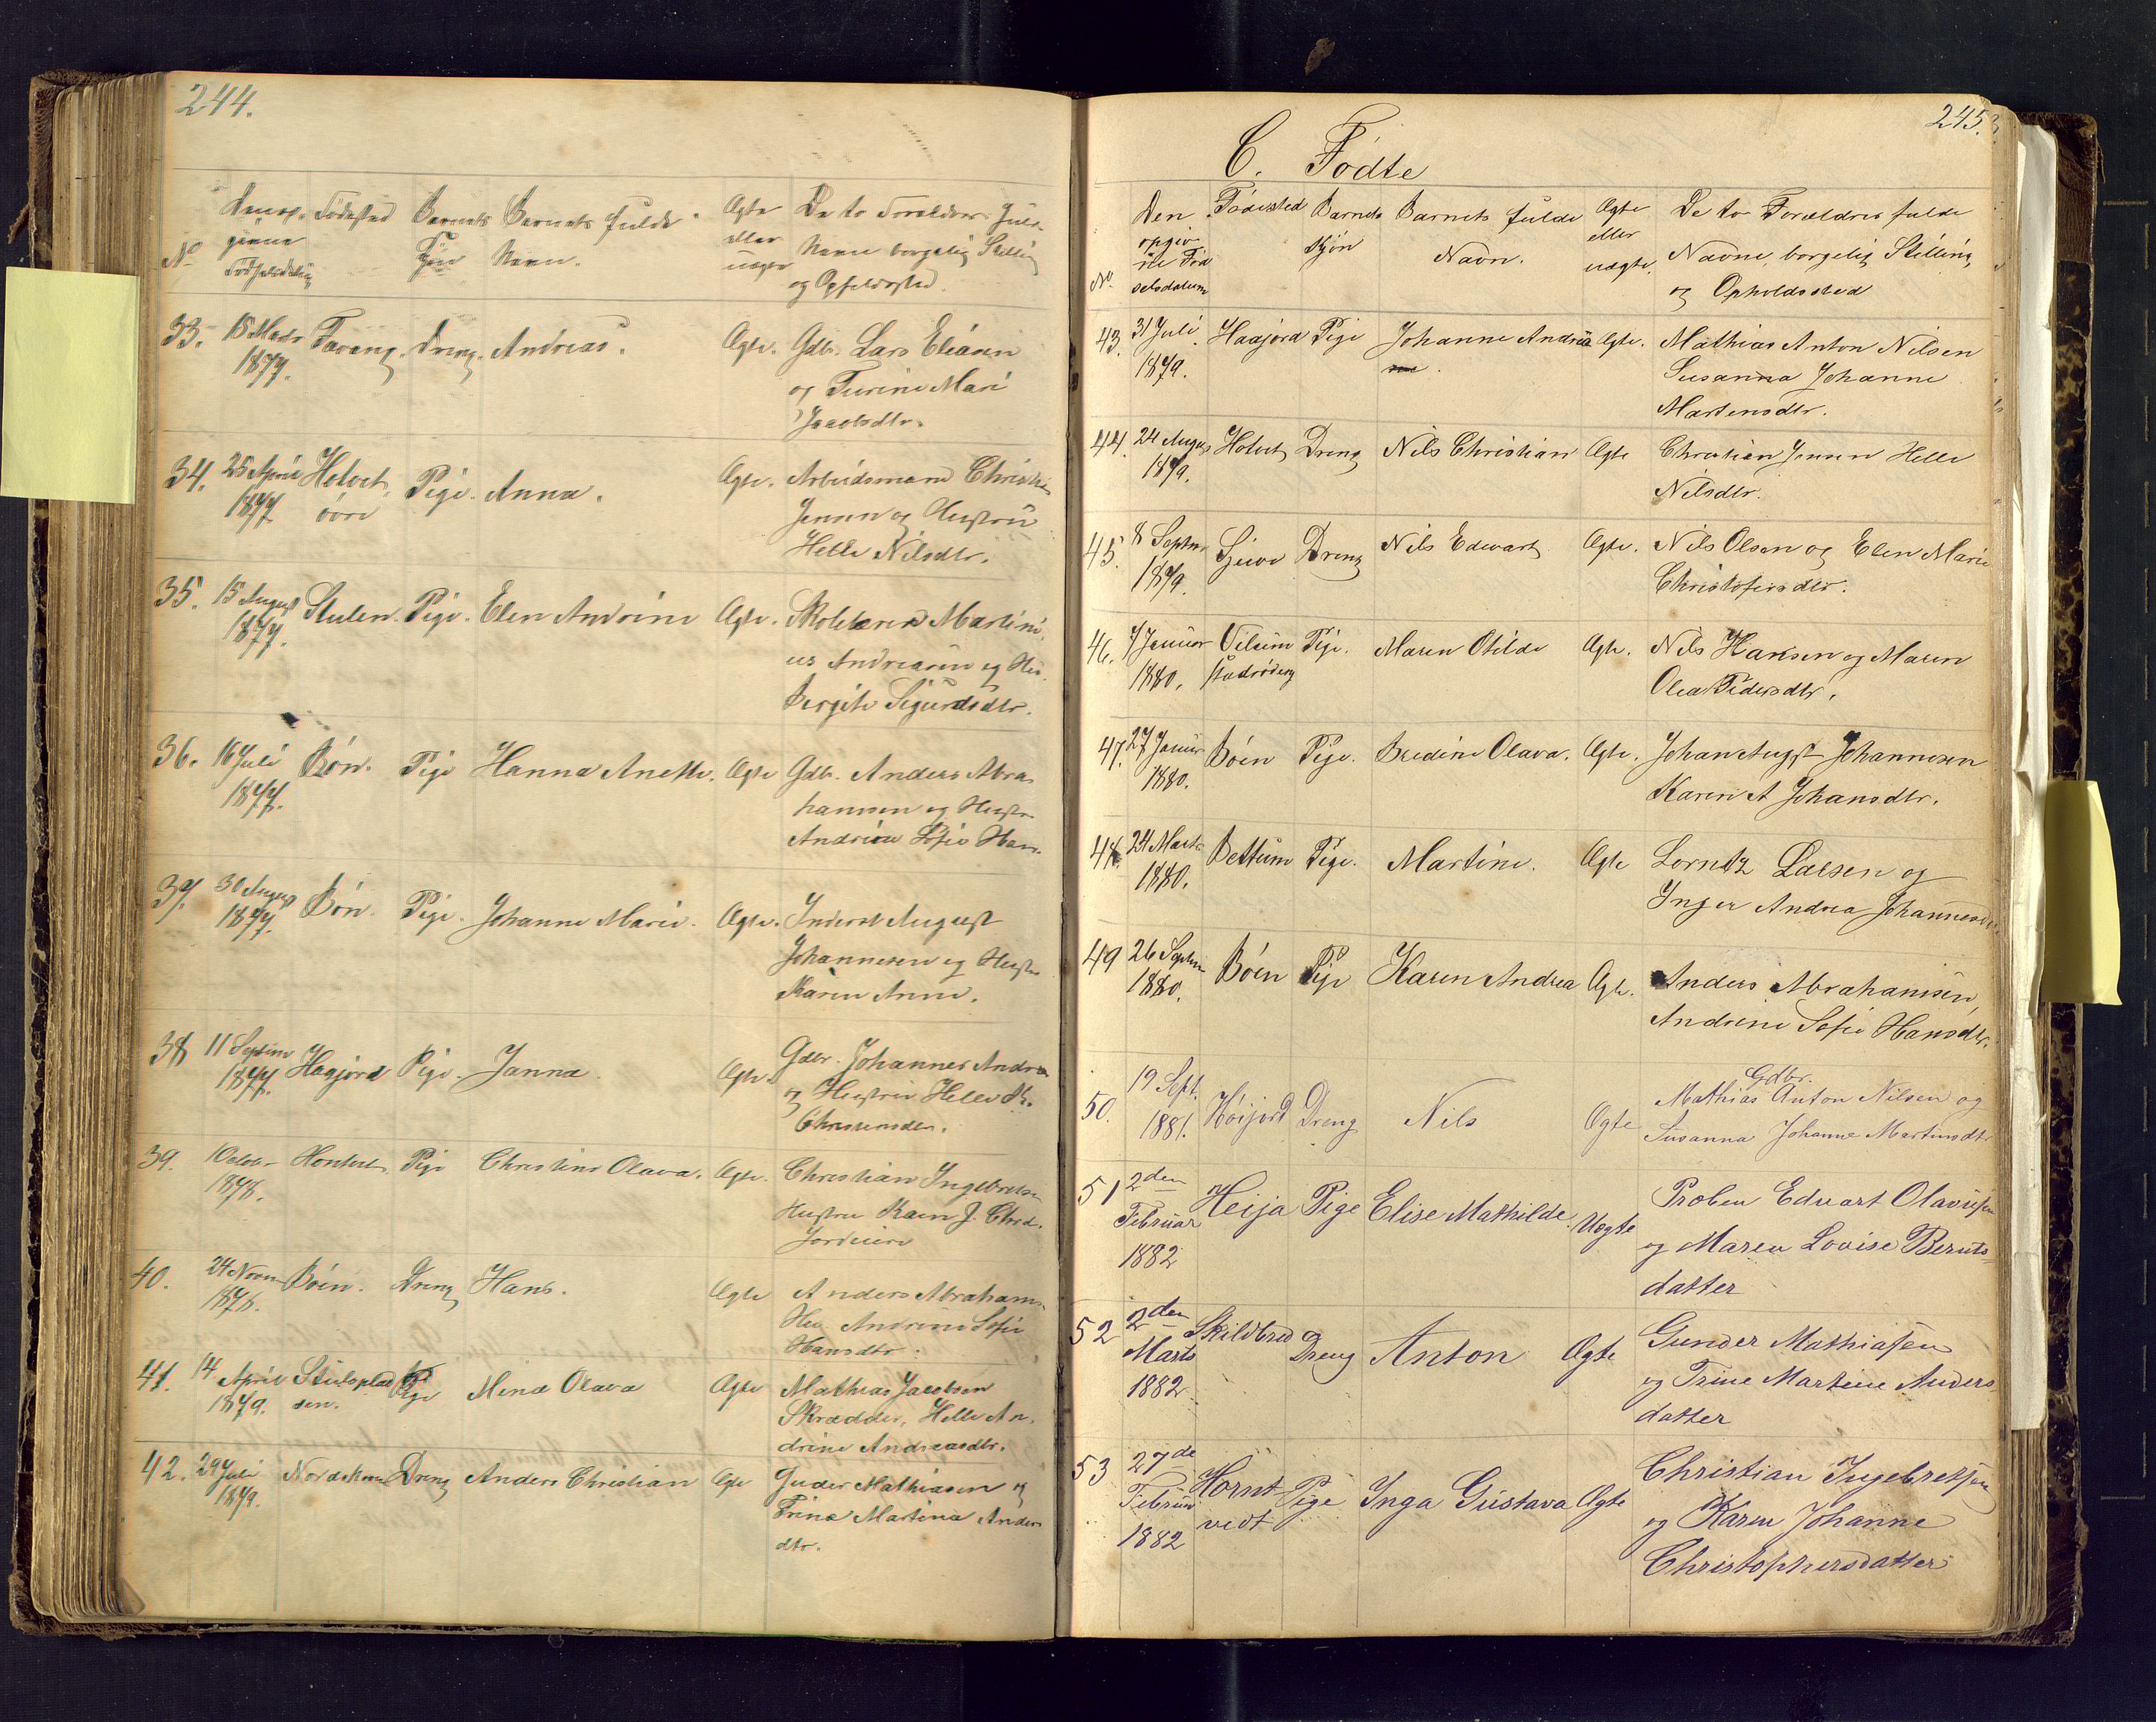 244.
No
Denop- Fødested Barnets Barnets fulde Ægte De to Forældres Fulde
givne Kjøn Navn. eller Navn borgelig Stilling
Fødselsdatum uægte og Opholdssted.
33. 15 Marts Farang. Dreng. Andreas. Ægte. Gdbr. Lars Eliasen
1877. og Turine Mari
Jacobsdtr.
34. 25 April Holvet Pige. Anna. Ægte. Arbeidsmand Christian
1877 øvre Jensen og Hustru
Helle Nilsdtr.
35. 15 August Stulen. Pige. Elen Andrine Ægte. Skolelærer Martini
1877. us Andreasen og Hus.
Bergite Sigurdsdtr.
36. 16 Juli Bøn. Pige Hanna Anette. Ægte Gdbr. Anders Abra
1877. hamsen og Hustru
Andrine Sofie Han.
37. 30 August Bøn. Pige. Johanne Marie. Ægte. Inderst August
1877. Johannesen og Hustru
Karen Anne.
38 11 Septem Haajord Pige. Janna. Ægte. Gdbr. Johannes Andrea
1877. og Hustru Helle Kr.
Christensdtr.
39. 1 Octobr Hontvet Pige Christine Olava. Ægte. Christian Ingebretsen
1878. Hustru Karen J. Chrd.
Jordeiere
40. 24 Novm Bøen. Dreng Hans. Ægte Anders Abrahams
1878. Hu. Andrine Sofie
Hansdtr.
41. 14 April Stulsplad Pige Mina Olava Ægte Mathias Jacobsen
1879. sen. Skrædder, Helle An.
drine Andreasdtr.
42. 29 Juli Nordskoven Dreng Anders Christian Ægte Guder Mathiasen og
1879. Trine Martina Anders
dtr.
245.
C. Fødte
Den Fødested Barnets Barnets fulde Ægte De to Forældres fulde
opgiv- Kjøn Navn. eller Navne, borgelig Stilling,
ne Fød uægte. og Opholdssted
No. selsdatum
43. 31 Juli Haajord Pige Johanne Andrea Ægte. Mathias Anton Nilsen
1879. Susanna Johanne
Martensdtr.
44. 24 August Holvet Dreng Nils Christian Ægte Christian Jensen Helle
1879. Nilsdtr.
45. 8 Septmr Sjuve Dreng Nils Edevart Ægte. Nils Olsen og Elen Marie
1879. Christofersdtr.
46. 7 Januar Vileim Pige. Maren Otilde Ægte. Nils Hansen og Maren
1880. Olea Pedersdtr.
47. 27 Januar Bøen Pige. Bredine Olava. Ægte. Johan August Johannesen
1880. Karen A Johansdtr.
48. 24 Marts Bettum Pige. Martine. Ægte Lorntz Larsen og
1880. Inger Andrea Johannesdtr
49 26 Septem Bøen Pige Karen Andrea Ægte. Anders Abrahamsen,
1880. Andrine Sofie Hansdtr.
50. 19 Sept. Høijord Dreng Nils Ægte Gdbr.
1881. Mathias Anton Nilsen og
Susanna Johanne Martinsdtr
51 2den Heija Pige Elise Mathilde. Uægte Proben Eduart Olavesen
Februar og Maren Lovise Bernts-
1882 datter
52 2den Skildbred Dreng Anton Ægte Gunder Mathiasen
Marts og Trine Martine Anders
1882 datter
53 27de Hornt- Pige Inga Gustava Ægte Christian Ingebretsen
Februar vedt og Karen Johanne
1882 Christophersdatter